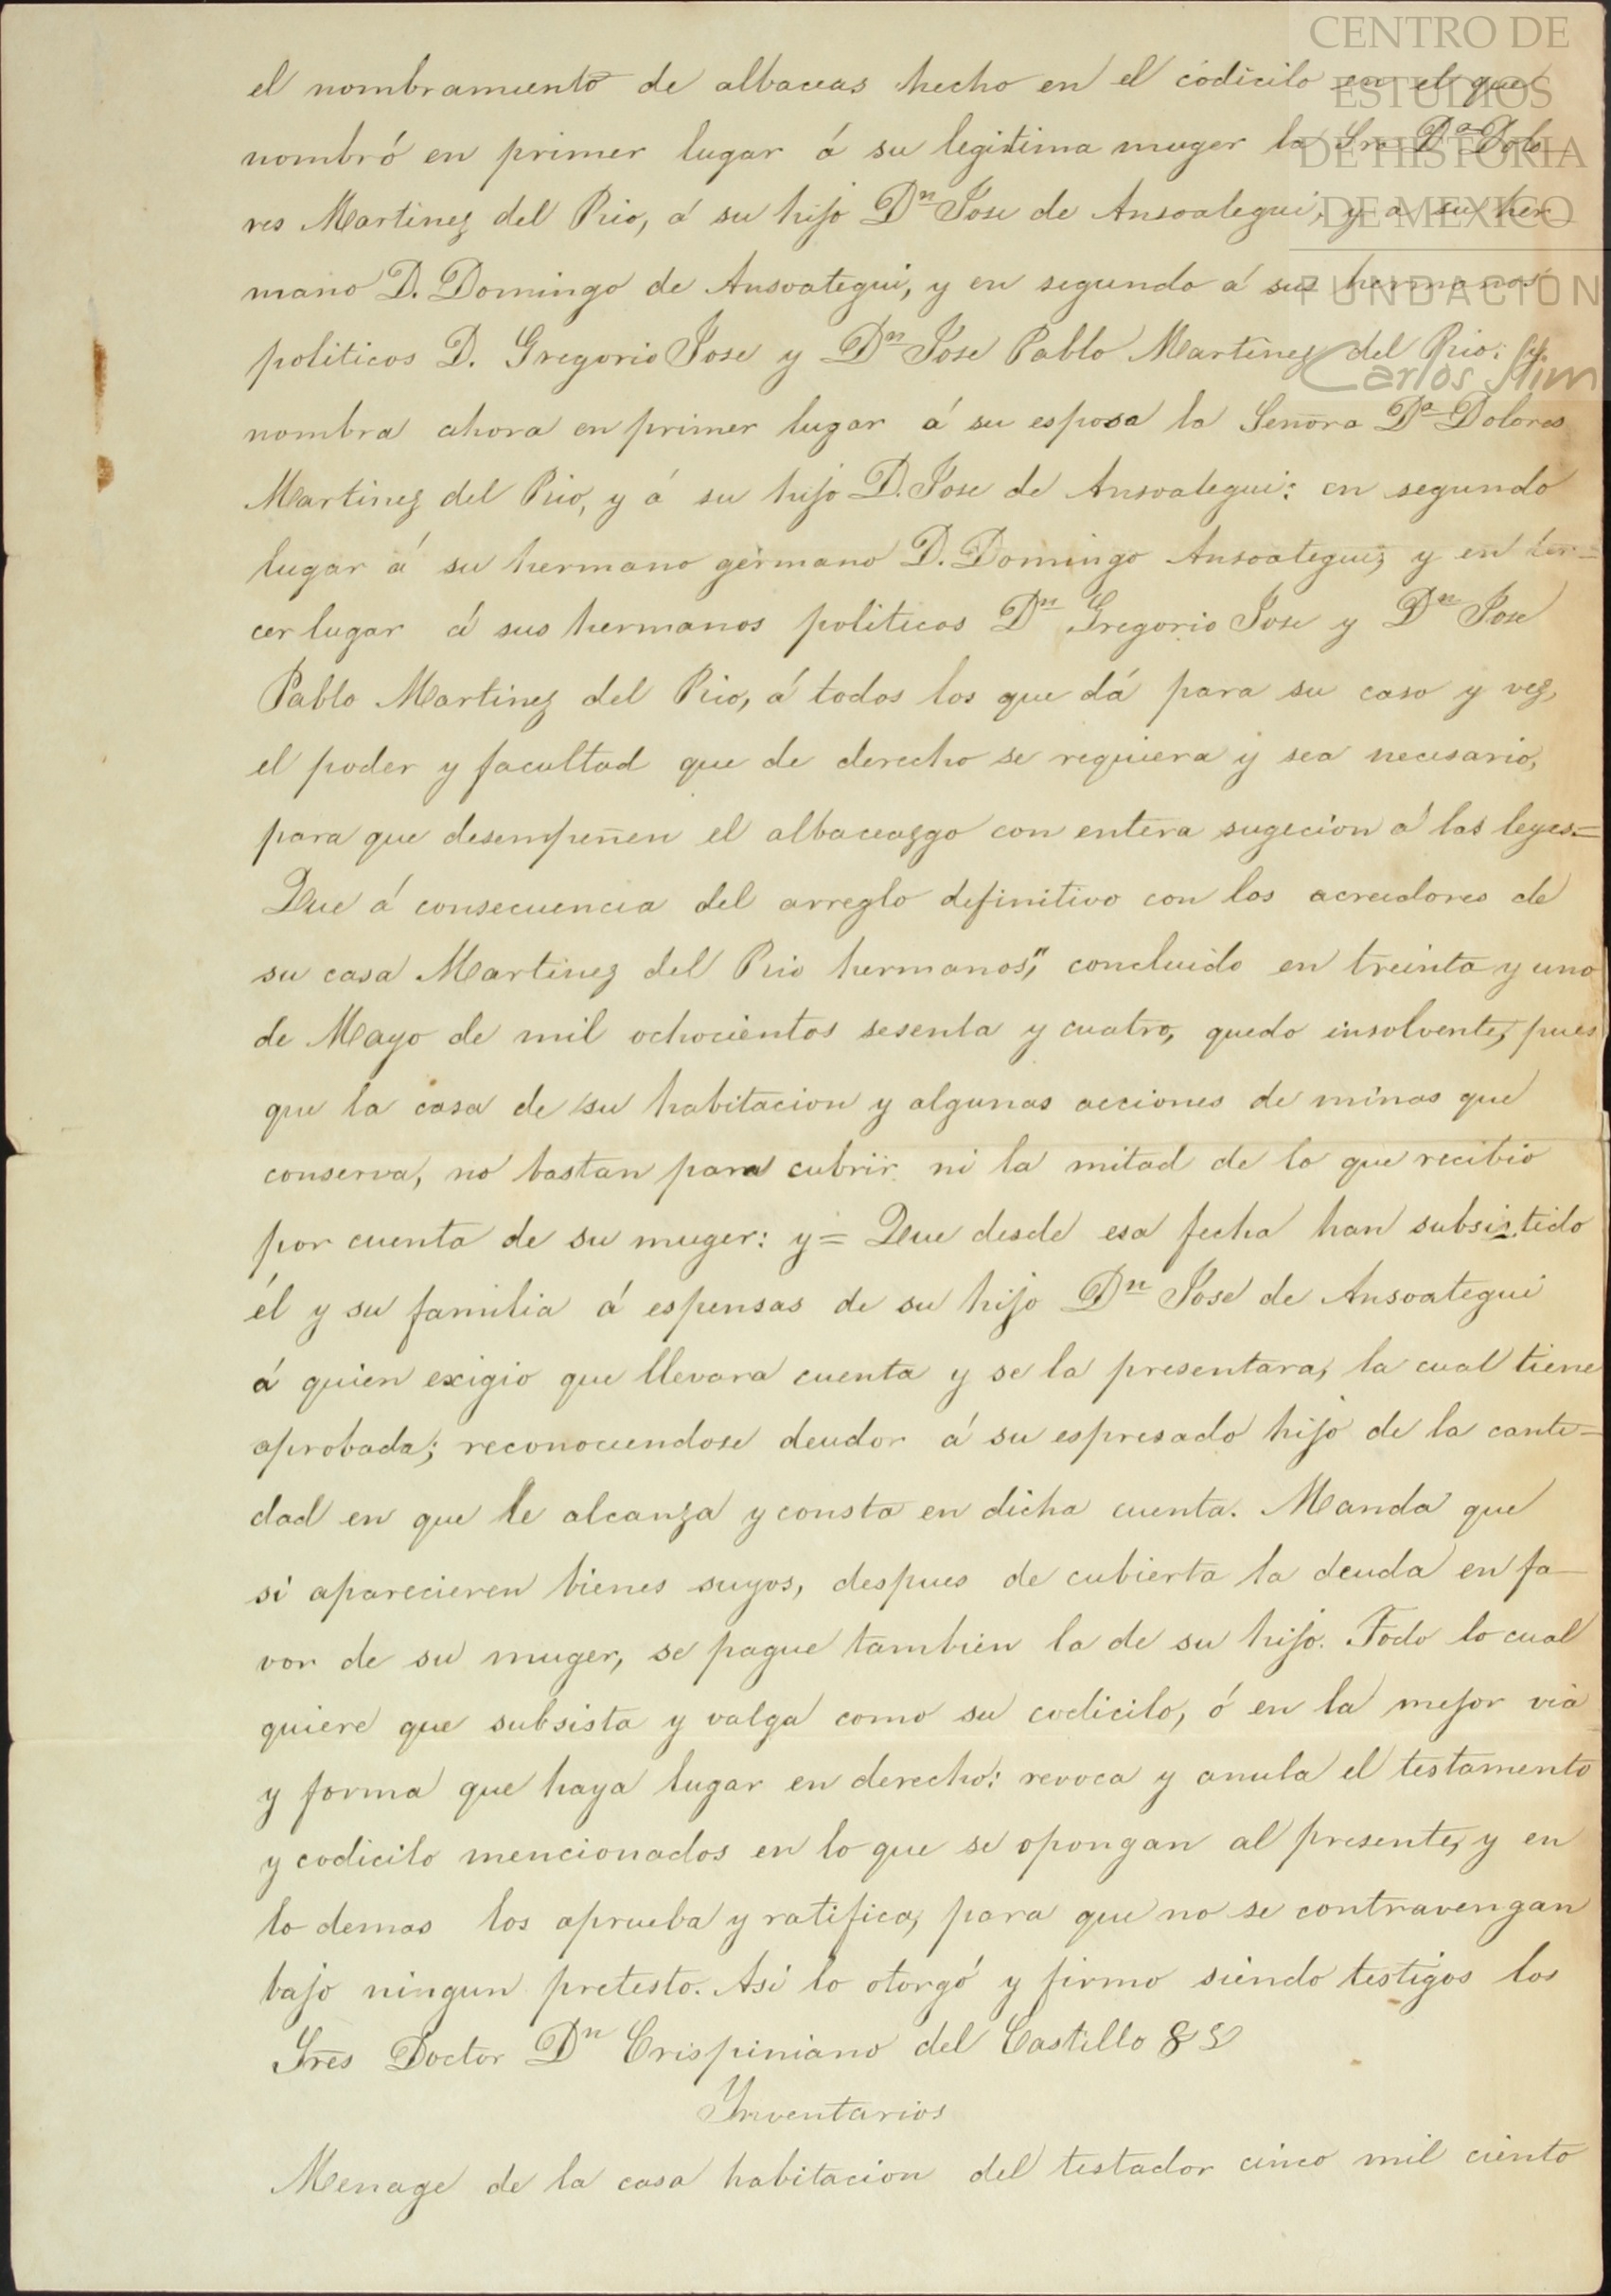 CENTRO DE
ESTUDIOS
DE HISTORIA
DE MEXICO
FUNDACIÓN
Carlos Slim
el nombramiento de albaceas hecho en el codicilo en el que
nombró en primer lugar á su legitima muger la Sra Dª Dolo-
res Martinez del Rio, á su hijo Dn Jose de Ansoategui, y a su her-
mano D. Domingo de Ansoategui, y en segundo á sus hermanos
politicos D. Gregorio Jose y Dn Jose Pablo Martinez del Rio: y
nombra ahora en primer lugar á su esposa la Señora Dª Dolores
Martinez del Rio, y á su hijo D. Jose de Ansoategui: en segundo
lugar á su hermano germano D. Domingo Ansoategui, y en ter=
cer lugar á sus hermanos politicos Dn Gregorio Jose y Dn Jose
Pablo Martinez del Rio, á todos los que dá para su caso y vez,
el poder y facultad que de derecho se requiera y sea necesario,
para que desempeñen el albaceazgo con entera sugecion á las leyes.=
Que á consecuencia del arreglo definitivo con los acreedores de
su casa Martinez del Rio hermanos", concluido en treinta y uno
de Mayo de mil ochocientos sesenta y cuatro, quedo insolvente, pues
que la casa de su habitacion y algunas acciones de minas que
conserva, no bastan para cubrir ni la mitad de lo que recibio
por cuenta de su muger: y= Que desde esa fecha han subsistido
él y su familia á espensas de su hijo Dn Jose de Ansoategui
á quien exigio que llevara cuenta y se la presentara, la cual tiene
aprobada; reconociendose deudor á su espresado hijo de la canti=
dad en que le alcanza y consta en dicha cuenta. Manda que
si aparecieren bienes suyos, despues de cubierta la deuda en fa-
vor de su muger, se pague tambien la de su hijo. Todo lo cual
quiere que subsista y valga como su codicilo, ó en la mejor via
y forma que haya lugar en derecho: revoca y anula el testamento
y codicilo mencionados en lo que se opongan al presente, y en
lo demas los aprueba y ratifica, para que no se contravengan
bajo ningun pretesto. Asi lo otorgó y firmo siendo testigos los
Sres Doctor Dn Crispiniano del Castillo &&
Inventarios
Menage de la casa habitacion del testador cinco mil ciento